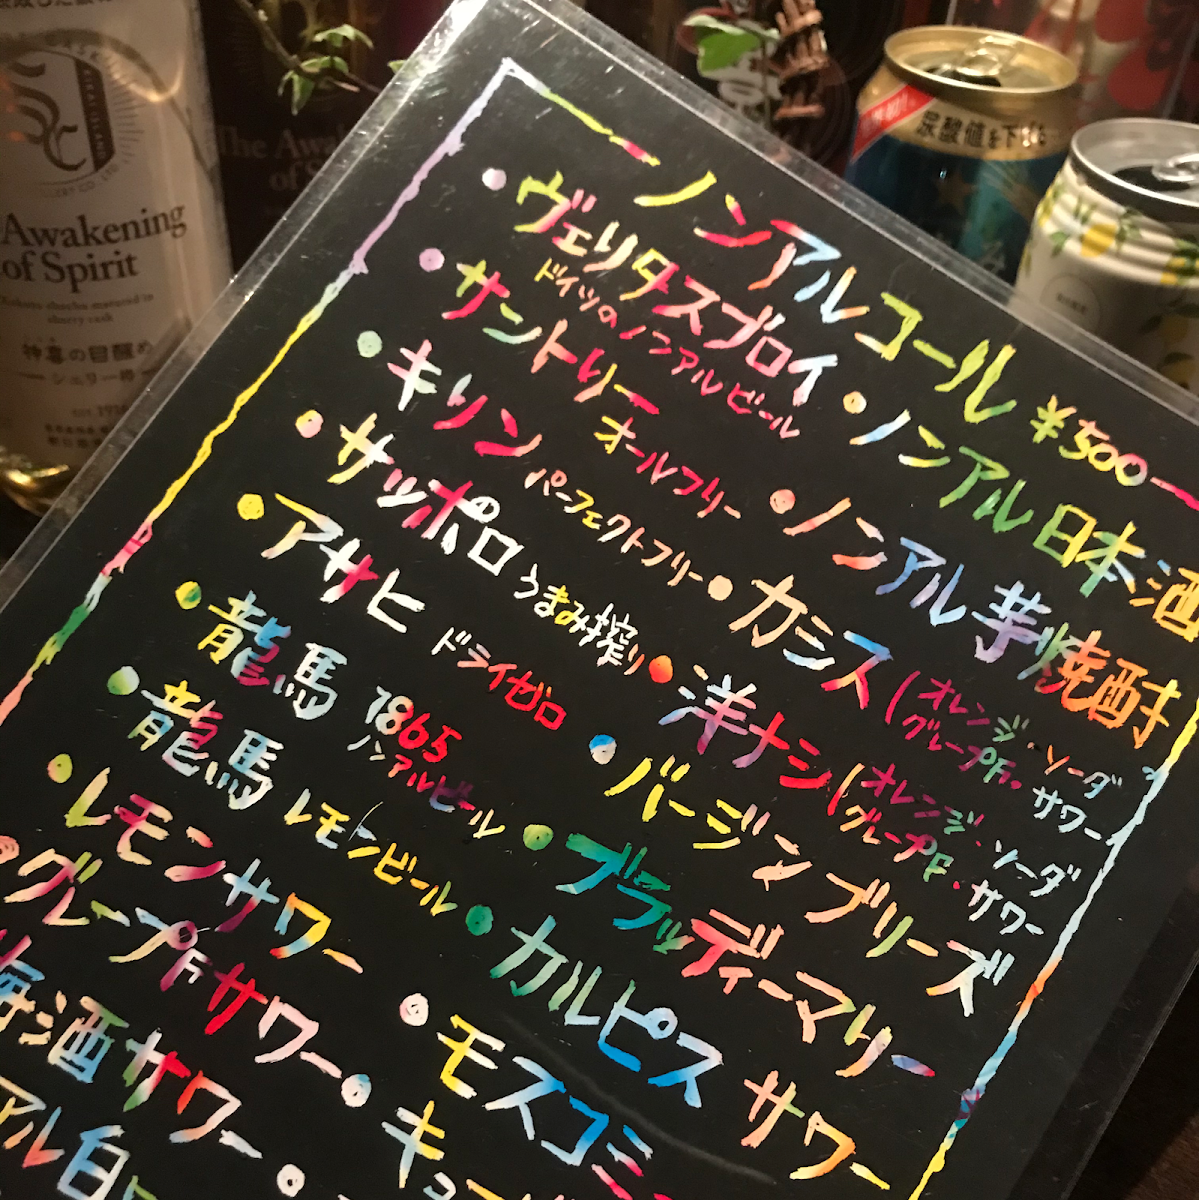 ノンアルコール ¥500
・ヴェリタスブロイ
ドイツのノンアルビール
・サントリー オールフリー
・キリン パーフェクトフリー
・サッポロ うまみ搾り
・アサヒ ドライゼロ
・龍馬 1865
ノンアルビール
・龍馬 レモンビール
・レモンサワー
・グレープFサワー
梅酒サワー
アル白
・ノンアル日本酒
・ノンアル芋焼酎
・カシス(オレンジ・ソーダ
グレープF・サワー
・洋ナシ(オレンジ・ソーダ
グレープF・サワー
・バージンブリーズ
・ブラッディーマリー
・カルピスサワー
・モスコミ
・キ
Awakening
of Spirit
Kakuto shochu matured in
sherry cask
神喜の目醒め
シェリー樽
The Awa
of S
尿酸値を下げる